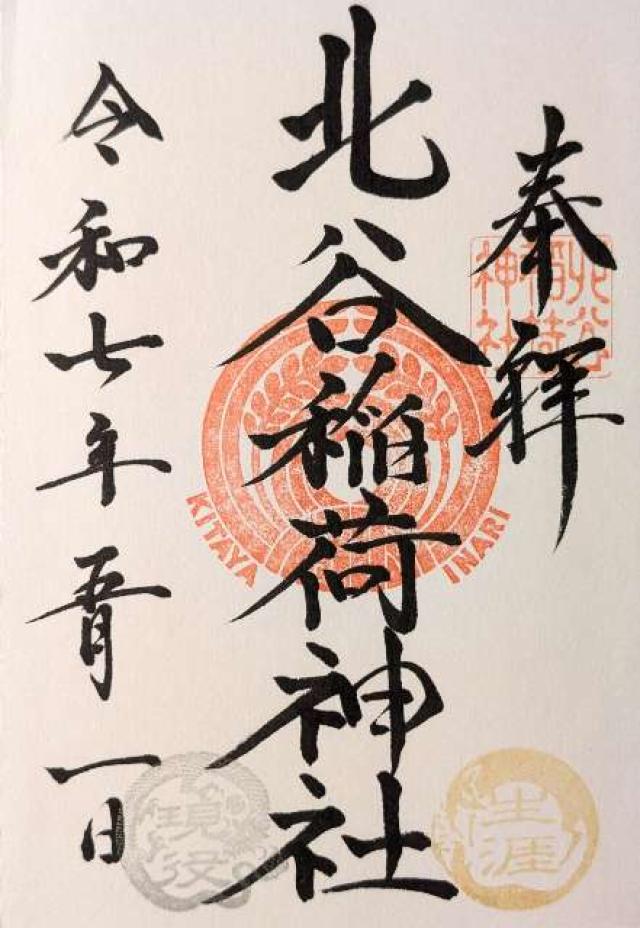 奉拝
北谷
稲荷
神社
北谷稲荷神社
KITAYA INARI
令和七年五月一日
生涯
現役